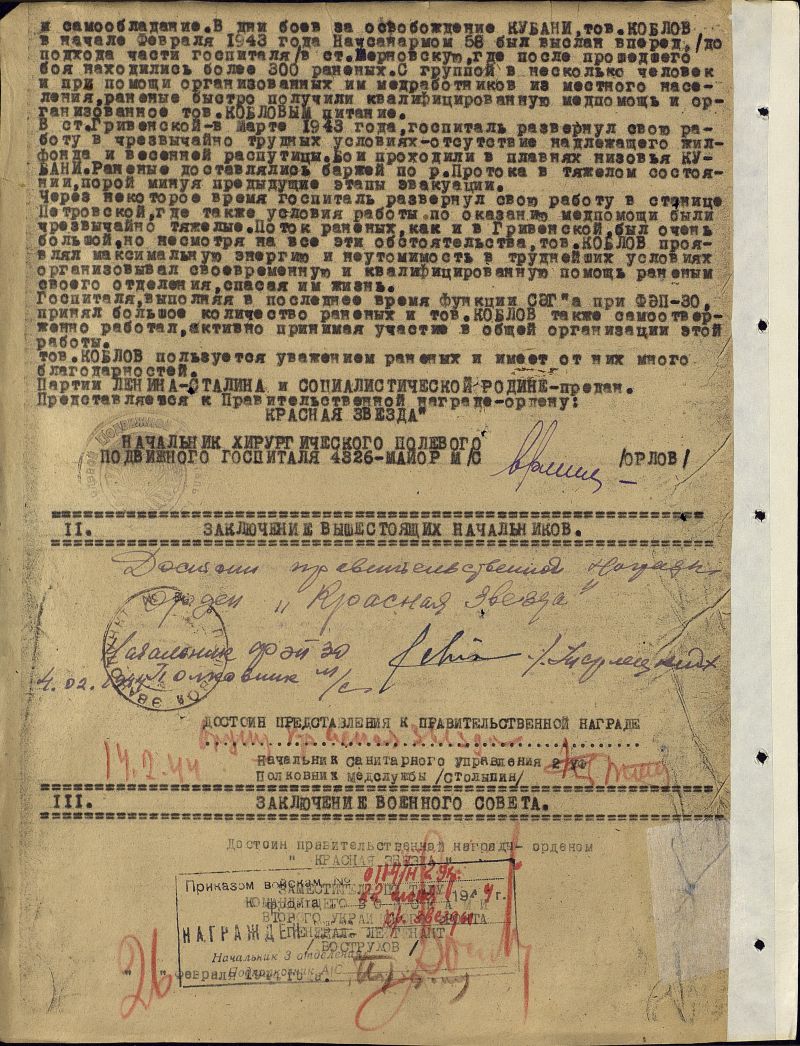 и самообладание.В дни боев за освобождение КУБАНИ,тов.КОБЛОВ
в начале Февраля 1943 года Начсанармом 58 был выслан вперед /до
подхода части госпиталя/в ст.Черновскую,где после прошедшего
боя находились более 300 раненых.С группой в несколько человек
и при помощи организованных им медработников из местного насе-
ления,раненые быстро получили квалифицированную медпомощь и ор-
ганизованное тов.КОБЛОВЫМ питание.
В ст.Гривенской-в Марте 1943 года,госпиталь развернул свою ра-
боту в чрезвычайно трудных условиях-отсутствие надлежащего жил-
фонда и весенней распутицы.Бои проходили в плавнях низовья КУ-
БАНИ.Раненые доставлялись баржей по р.Протока в тяжелом состоя-
нии,порой минуя предыдущие этапы эвакуации.
Через некоторое время госпиталь развернул свою работу в станице
Петровской,где также условия работы по оказанию медпомощи были
чрезвычайно тяжелые.Поток раненых,как и в Гривенской,был очень
большой,но несмотря на все эти обстоятельства,тов.КОБЛОВ проя-
влял максимальную энергию и неутомимость в труднейших условиях
организовывал своевременную и квалифицированную помощь раненым
своего отделения,спасая им жизнь.
Госпиталя,выполняя в последнее время функции СЭГ"а при ФЭП-30,
принял большое количество раненых и тов.КОБЛОВ также самоотвер-
женно работал,активно принимая участие в общей организации этой
работы.
тов.КОБЛОВ пользуется уважением раненых и имеет от них много
благодарностей.
Партии ЛЕНИНА-СТАЛИНА и СОЦИАЛИСТИЧЕСКОЙ РОДИНЕ-предан.
Представляется к Правительственной награде-ордену:
КРАСНАЯ ЗВЕЗДА"
НАЧАЛЬНИК ХИРУРГИЧЕСКОГО ПОЛЕВОГО
ПОДВИЖНОГО ГОСПИТАЛЯ 4326-МАЙОР М/С /ОРЛОВ/
II. ЗАКЛЮЧЕНИЕ ВЫШЕСТОЯЩИХ НАЧАЛЬНИКОВ.
Достоин правительственной награды
орден „Красная Звезда"
Начальник ФЭП 30
Полковник м/с
ДОСТОИН ПРЕДСТАВЛЕНИЯ К ПРАВИТЕЛЬСТВЕННОЙ НАГРАДЕ
Красная Звезда
14.2.44
Начальник Санитарного управления 2 УФ
Полковник Медслужбы /СТОЛЫПИН/
III. ЗАКЛЮЧЕНИЕ ВОЕННОГО СОВЕТА.
Достоин правительственной награды- орденом
" КРАСНАЯ ЗВЕЗДА "
Приказом войскам №
фронта 194 4 г.
Кр. Звезды
НАГРАЖДЕН
ЗАМЕСТИТЕЛЬ ПО ТЫЛУ
ВТОРОГО
ГЕНЕРАЛ- ЛЕЙТЕНАНТ
/ ВОСТРУХОВ /
Начальник 3 отделения
Подполковник А/С
26
" " февраля